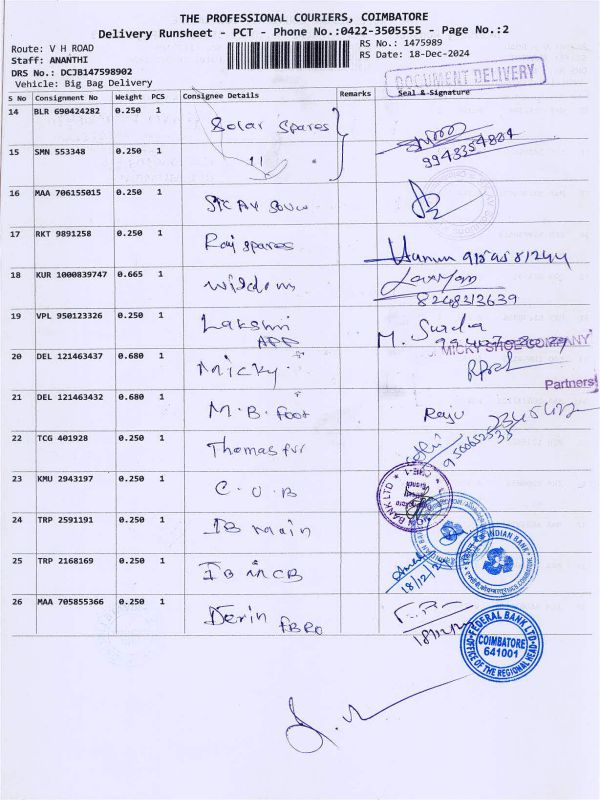 THE PROFESSIONAL COURIERS, COIMBATORE
Delivery Runsheet - PCT - Phone No.:0422-3505555 - Page No.:2
Route: V H ROAD
Staff: ANANTHI
DRS No.: DCJB147598902
Vehicle: Big Bag Delivery
RS No.: 1475989
RS Date: 18-Dec-2024
DOCUMENT DELIVERY
S No Consignment No Weight PCS Consignee Details Remarks Seal & Signature
14 BLR 690424282 0.250 1 Solar Spares
15 SMN 553348 0.250 1 11 9943354884
16 MAA 706155015 0.250 1
17 RKT 9891258 0.250 1 Raj spares
18 KUR 1000839747 0.665 1 Wisdom Laxman
8248313639
19 VPL 950123326 0.250 1 Lakshmi
APP
M. Surda
20 DEL 121463437 0.680 1 Micky
MICKY SHOE COMPANY
Partners
21 DEL 121463432 0.680 1 M.B. Foot Raju
22 TCG 401928 0.250 1 Thomas fur
23 KMU 2943197 0.250 1 C.U.B
24 TRP 2591191 0.250 1 IB Main
INDIAN BANK
25 TRP 2168169 0.250 1 IB MCB
18/12/24
26 MAA 705855366 0.250 1 Derin
FBRO
FEDERAL BANK LTD
COIMBATORE
641001
OFFICE OF THE REGIONAL HEAD